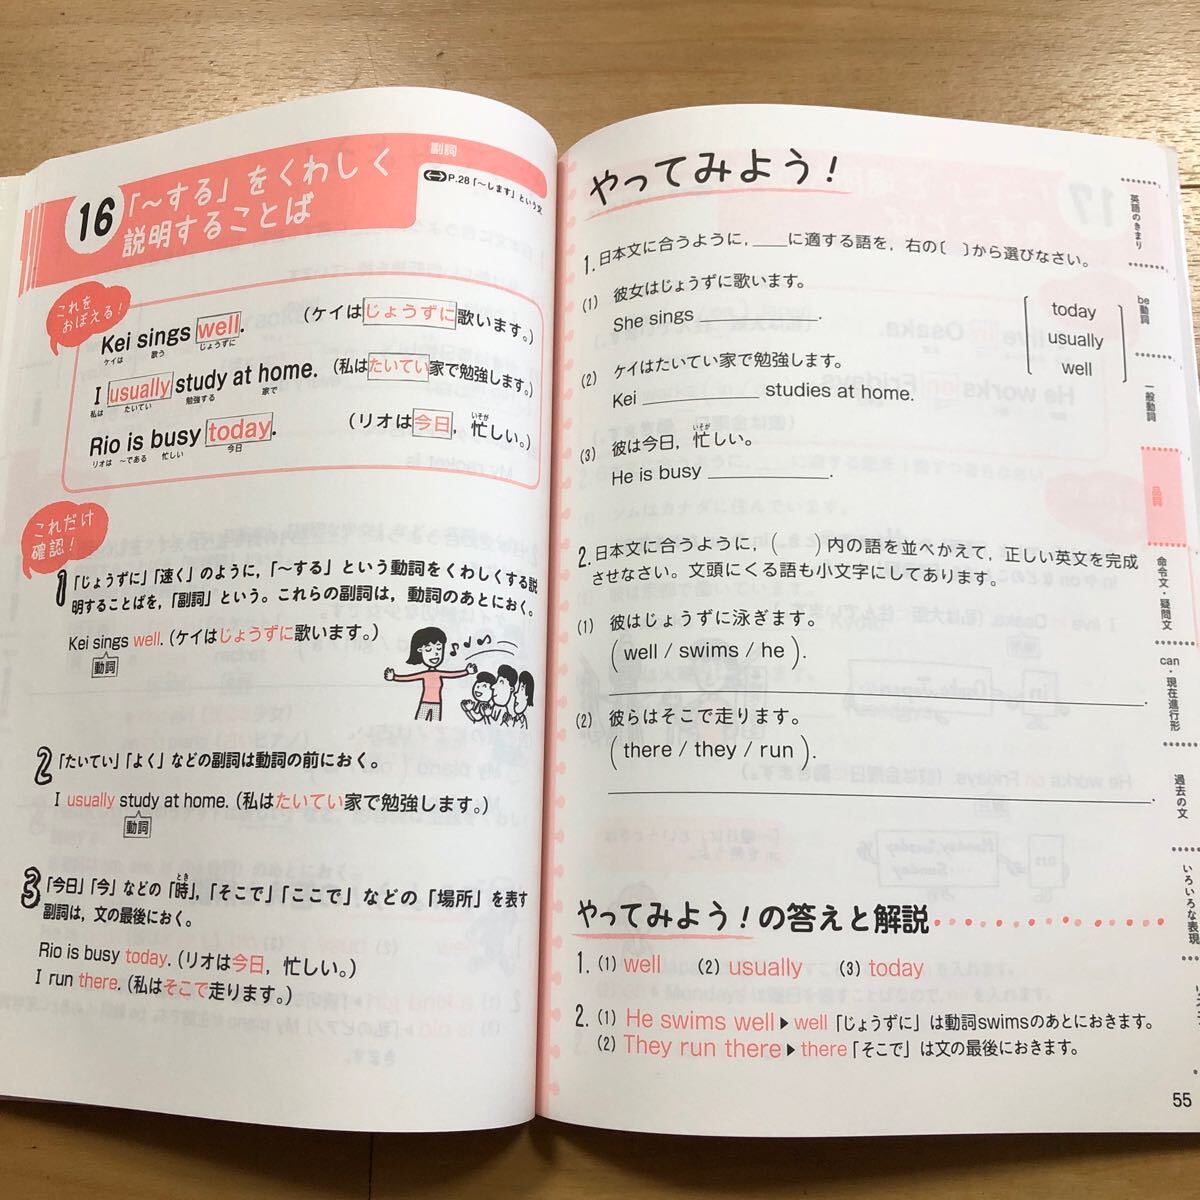 副詞
16 「～する」をくわしく
説明することば
P.28「～します」という文
これを
おぼえる！
Kei sings well. (ケイはじょうずに歌います。)
ケイは 歌う じょうずに
I usually study at home. (私はたいてい家で勉強します。)
私は たいてい 勉強する 家で
Rio is busy today. (リオは今日，忙しい。)
いそが
リオは ～である 忙しい 今日
これだけ
確認！
1 「じょうずに」「速く」のように，「～する」という動詞をくわしくする説
明することばを，「副詞」という。これらの副詞は，動詞のあとにおく。
Kei sings well. (ケイはじょうずに歌います。)
動詞
2 「たいてい」「よく」などの副詞は動詞の前におく。
I usually study at home. (私はたいてい家で勉強します。)
動詞
3 「今日」「今」などの「時」，「そこで」「ここで」などの「場所」を表す
とき
副詞は，文の最後におく。
Rio is busy today. (リオは今日，忙しい。)
I run there. (私はそこで走ります。)
やってみよう！
1. 日本文に合うように，____に適する語を，右の〔 〕から選びなさい。
(1) 彼女はじょうずに歌います。
She sings ____________.
(2) ケイはたいてい家で勉強します。
Kei ____________ studies at home.
(3) 彼は今日，忙しい。
いそが
He is busy ____________.
today
usually
well
2. 日本文に合うように，( )内の語を並べかえて，正しい英文を完成
させなさい。文頭にくる語も小文字にしてあります。
(1) 彼はじょうずに泳ぎます。
(well / swims / he).
____________.
(2) 彼らはそこで走ります。
(there / they / run).
____________.
やってみよう！の答えと解説
1. (1) well (2) usually (3) today
2. (1) He swims well ▶ well「じょうずに」は動詞swimsのあとにおきます。
(2) They run there ▶ there「そこで」は文の最後におきます。
英語のきまり
be動詞
一般動詞
品詞
命令文・疑問文
can・現在進行形
過去の文
いろいろな表現
55